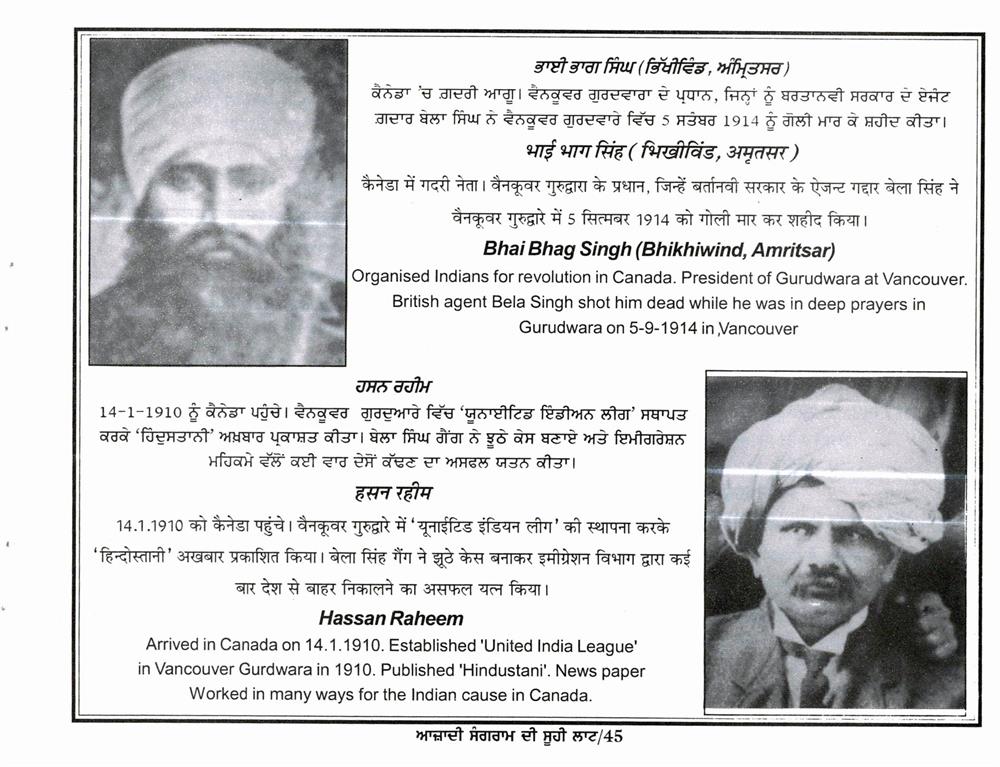 ਭਾਈ ਭਾਗ ਸਿੰਘ (ਭਿੱਖੀਵਿੰਡ, ਅੰਮ੍ਰਿਤਸਰ)
ਕੈਨੇਡਾ 'ਚ ਗ਼ਦਰੀ ਆਗੂ। ਵੈਨਕੂਵਰ ਗੁਰਦਵਾਰਾ ਦੇ ਪ੍ਰਧਾਨ, ਜਿਨ੍ਹਾਂ ਨੂੰ ਬਰਤਾਨਵੀ ਸਰਕਾਰ ਦੇ ਏਜੰਟ
ਗ਼ਦਾਰ ਬੇਲਾ ਸਿੰਘ ਨੇ ਵੈਨਕੂਵਰ ਗੁਰਦਵਾਰੇ ਵਿੱਚ 5 ਸਤੰਬਰ 1914 ਨੂੰ ਗੋਲੀ ਮਾਰ ਕੇ ਸ਼ਹੀਦ ਕੀਤਾ।
भाई भाग सिंह ( भिखीविंड, अमृतसर )
कैनेडा में गदरी नेता। वैनकूवर गुरुद्वारा के प्रधान, जिन्हें बर्तानवी सरकार के ऐजन्ट गद्दार बेला सिंह ने
वैनकूवर गुरुद्वारे में 5 सित्मबर 1914 को गोली मार कर शहीद किया।
Bhai Bhag Singh (Bhikhiwind, Amritsar)
Organised Indians for revolution in Canada. President of Gurudwara at Vancouver.
British agent Bela Singh shot him dead while he was in deep prayers in
Gurudwara on 5-9-1914 in ,Vancouver
ਹਸਨ ਰਹੀਮ
14-1-1910 ਨੂੰ ਕੈਨੇਡਾ ਪਹੁੰਚੇ। ਵੈਨਕੂਵਰ ਗੁਰਦੁਆਰੇ ਵਿੱਚ 'ਯੂਨਾਈਟਿਡ ਇੰਡੀਅਨ ਲੀਗ' ਸਥਾਪਤ
ਕਰਕੇ 'ਹਿੰਦੁਸਤਾਨੀ' ਅਖ਼ਬਾਰ ਪ੍ਰਕਾਸ਼ਤ ਕੀਤਾ। ਬੇਲਾ ਸਿੰਘ ਗੈਂਗ ਨੇ ਝੂਠੇ ਕੇਸ ਬਣਾਏ ਅਤੇ ਇਮੀਗਰੇਸ਼ਨ
ਮਹਿਕਮੇ ਵੱਲੋਂ ਕਈ ਵਾਰ ਦੇਸੋਂ ਕੱਢਣ ਦਾ ਅਸਫਲ ਯਤਨ ਕੀਤਾ।
हसन रहीम
14.1.1910 को कैनेडा पहुंचे। वैनकूवर गुरुद्वारे में 'यूनाईटिड इंडियन लीग' की स्थापना करके
'हिन्दोस्तानी' अखबार प्रकाशित किया। बेला सिंह गैंग ने झूठे केस बनाकर इमीग्रेशन विभाग द्वारा कई
बार देश से बाहर निकालने का असफल यत्न किया।
Hassan Raheem
Arrived in Canada on 14.1.1910. Established 'United India League'
in Vancouver Gurdwara in 1910. Published 'Hindustani'. News paper
Worked in many ways for the Indian cause in Canada.
ਆਜ਼ਾਦੀ ਸੰਗਰਾਮ ਦੀ ਸੂਹੀ ਲਾਟ/45